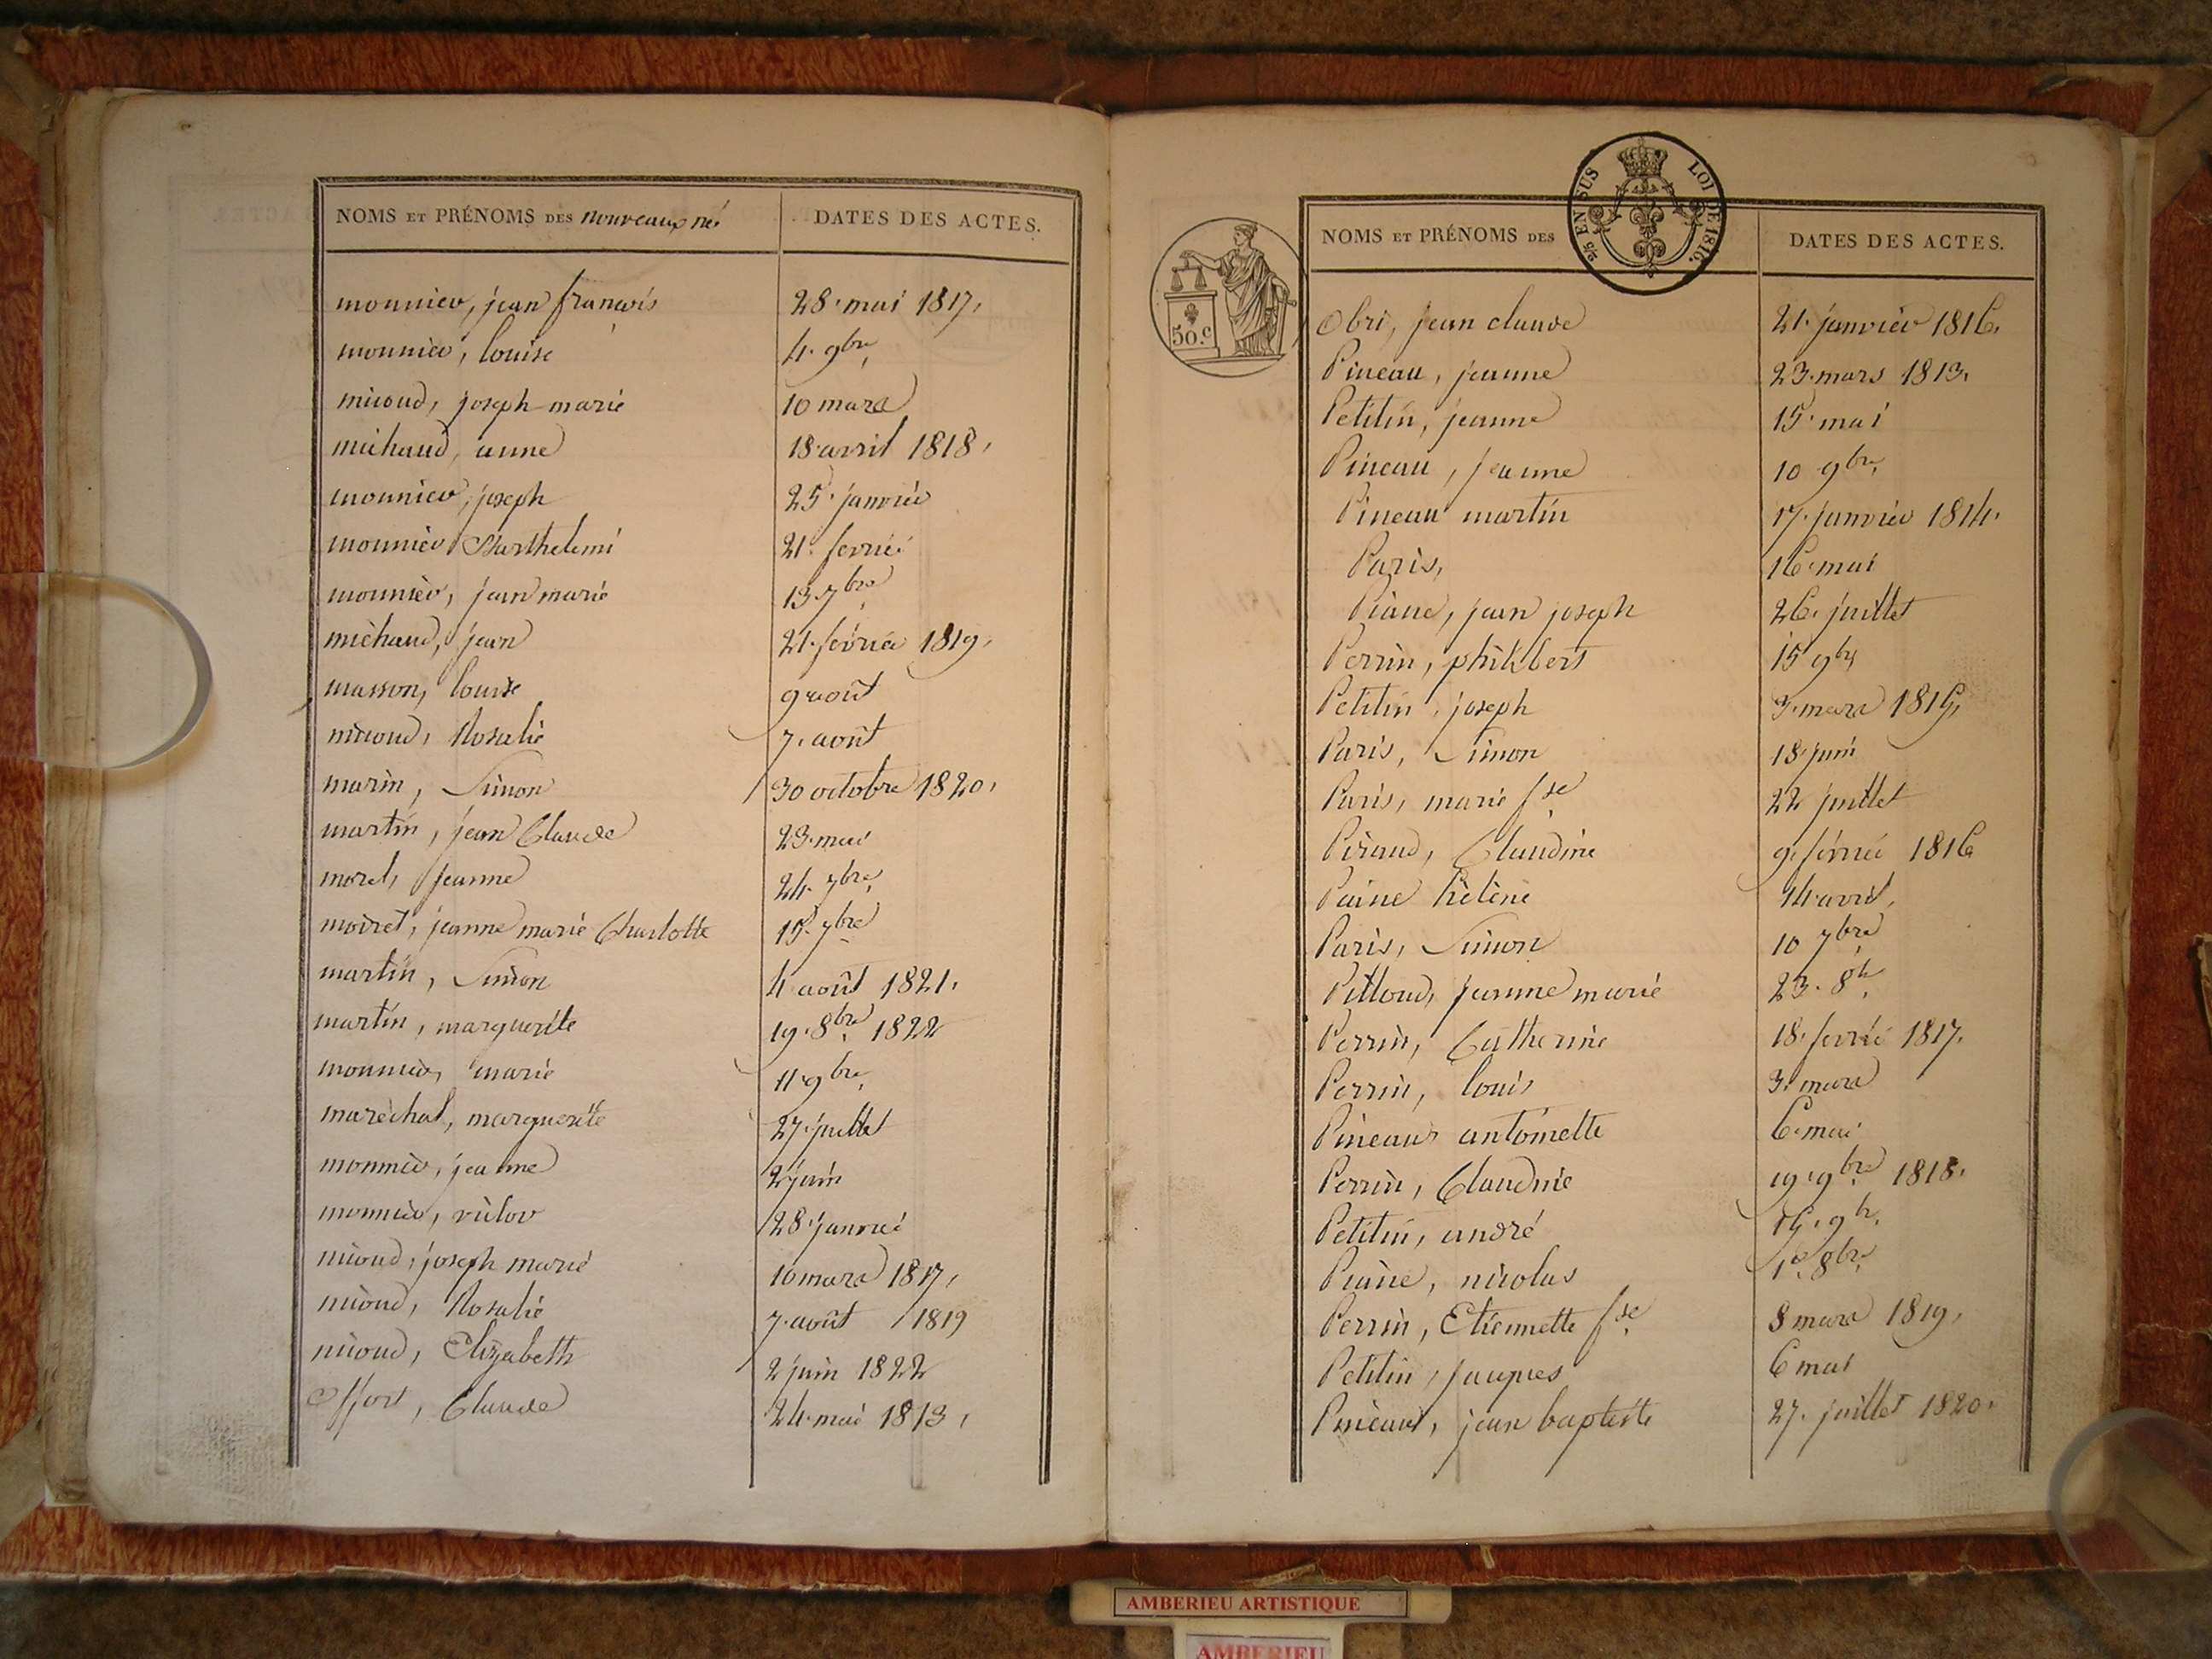 NOMS ET PRÉNOMS DES nouveaux nés DATES DES ACTES.
monnier, jean françois 28. mai 1817.
monnier, louise 4. 9bre
micoud, joseph marie 10 mars
michaud, anne 18 avril 1818.
monnier, joseph 25. janvier
monnier Barthelemi 21. fevrier
monnier, jean marie 13. 7bre
michaud, jean 21. février 1819.
masson, louise 9 août
micoud, Rosalie 7. août
marin, Simon 30 octobre 1820.
martin, jean Claude 23. mai
morel, jeanne 24. 7bre
moiret, jeanne marie Charlotte 15. 7bre
martin, Simon 4 août 1821.
martin, marguerite 19. 8bre 1822
monnier, marie 11. 9bre
maréchal, marguerite 27. juillet
monnier, jeanne 2 juin
monnier, victor 28. janvier
nicoud, joseph marie 10 mars 1817.
nicoud, Rosalie 7. août 1819
nicoud, Elizabeth 2 juin 1822
offort, Claude 24. mai 1813.
2/5 EN SUS LOI DE 1816.
50.c
NOMS ET PRÉNOMS DES DATES DES ACTES.
Obri, jean claude 21. janvier 1816.
Pineau, jeanne 23. mars 1813.
Petitin, jeanne 15. mai
Pineau, jeanne 10 9bre
Pineau martin 17. janvier 1814.
Paris, 16. mai
Piane, jean joseph 26. juillet
Perrin, philibert 15 9bre
Petitin, joseph 3. mars 1815.
Paris, Simon 18. juin
Paris, marie fse 22 juillet
Piraud, Claudine 9. février 1816
Paine hélène 14 avril.
Paris, Simon 10 7bre
Pittoud, jeanne marie 23. 8bre
Perrin, Catherine 18. fevrié 1817.
Perrin, louis 3. mars
Pineau antoinette 6. mai
Perrin, Claudine 19. 9bre 1818.
Petitin, andré 15. 9bre
Piaine, nicolas 1er 8bre
Perrin, Etiennette fse 8 mars 1819.
Petitin, jacques 6 mai
Pineaut, jean baptiste 27. juillet 1820.
AMBERIEU ARTISTIQUE
AMBERIEU